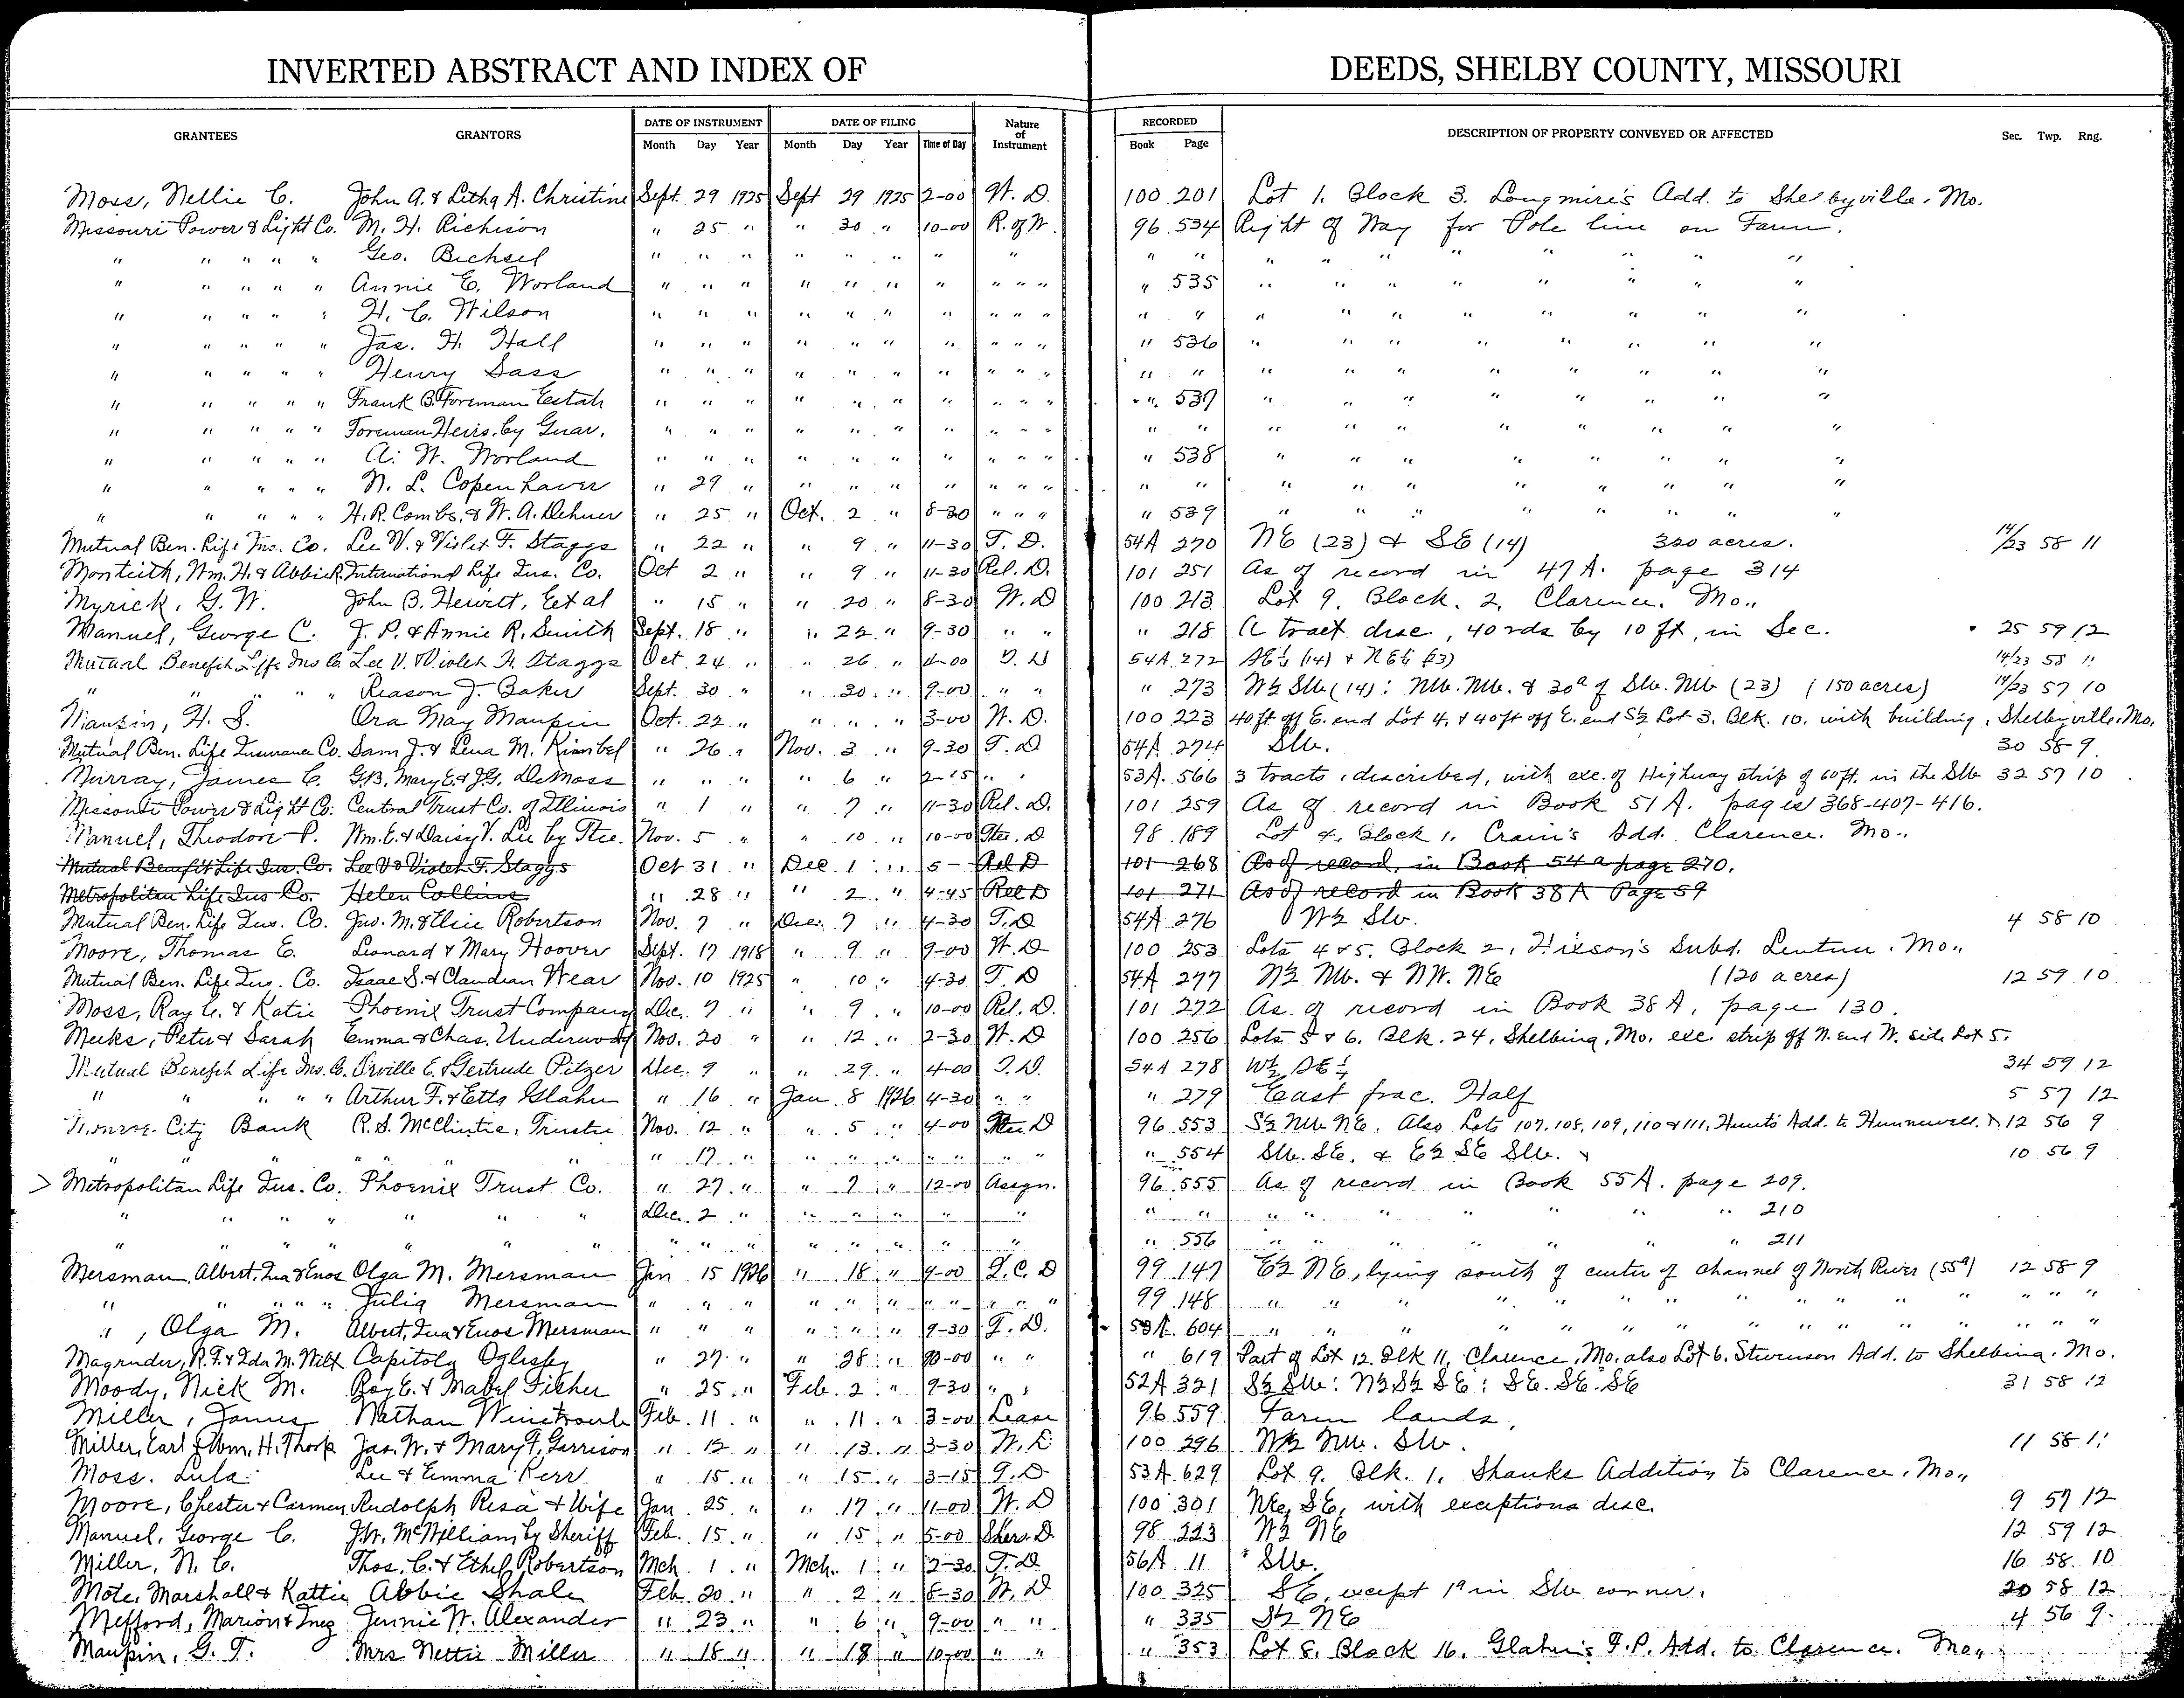 INVERTED ABSTRACT AND INDEX OF DEEDS, SHELBY COUNTY, MISSOURI
GRANTEES GRANTORS DATE OF INSTRUMENT DATE OF FILING Nature of Instrument RECORDED DESCRIPTION OF PROPERTY CONVEYED OR AFFECTED Sec. Twp. Rng.
Month Day Year Month Day Year Time of Day Book Page
Moss, Nellie C. John A. & Letha A. Christine Sept. 29 1925 Sept 29 1925 2-00 W. D. 100 201 Lot 1. Block 3. Longmire's Add. to Shelbyville. Mo.
Missouri Power & Light Co. M. H. Richison " 25 " " 30 " 10-00 R. of W. 96 534 Right of Way for Pole line on Farm.
" " " " " Geo. Bichsel " " " " " " " " " " " " " " " " " "
" " " " " Annie E. Worland " " " " " " " " " " " 535 " " " " " " " "
" " " " " H. C. Wilson " " " " " " " " " " " " " " " " " " " "
" " " " " Jas. H. Hall " " " " " " " " " " " 536 " " " " " " " "
" " " " " Henry Sass " " " " " " " " " " " " " " " " " " " "
" " " " " Frank B. Foreman Estate " " " " " " " " " " " 537 " " " " " " " "
" " " " " Foreman Heirs. by Guar. " " " " " " " " " " " " " " " " " " " "
" " " " " A. W. Worland " " " " " " " " " " " 538 " " " " " " " "
" " " " " N. L. Copenhaver " 29 " " " " " " " " " " " " " " " " " "
" " " " " H. R. Combs. & W. A. Dehner " 25 " Oct. 2 " 8-30 " " " " 539 " " " " " " " "
Mutual Ben. Life Ins. Co. Lee V. & Violet F. Staggs " 22 " " 9 " 11-30 T. D. 54A 270 NE (23) & SE (14) 320 acres. 14/23 58 11
Monteith, Wm. H. & Abbie R. International Life Ins. Co. Oct 2 " " 9 " 11-30 Rel. D. 101 251 As of record in 47 A. page 314
Myrick, G. W. John B. Hewitt, Et al " 15 " " 20 " 8-30 W. D 100 213 Lot 9. Block. 2, Clarence. Mo..
Manuel, George C. J. P. & Annie R. Smith Sept. 18 " " 22 " 9-30 " " " 218 A tract desc., 40 rds by 10 ft, in Sec. 25 59 12
Mutual Benefit Life Ins Co Lee V. & Violet F. Staggs Oct 24 " " 26 " 4-00 T. D 54A 272 SE¼ (14) & NE¼ (23) 14/23 58 11
" " " " " Reason J. Baker Sept. 30 " " 30 " 9-00 " " " 273 W½ SW (14): NW. NW. & 30ª of SW. NW (23) (150 acres) 14/23 57 10
Maupin, H. S. Ora May Maupin Oct. 22 " " " " 3-00 W. D. 100 223 40 ft off E. end Lot 4. & 40 ft off E. end S½ Lot 3. Blk. 10. with building. Shelbyville. Mo.
Mutual Ben. Life Insurance Co. Sam J. & Lena M. Kimbel " 26 " Nov. 3 " 9-30 T. D 54A 274 SW. 30 58 9
Murray, James C. G.B. Mary E. & J.G. DeMoss " " " " 6 " 2-15 " " 53A. 566 3 tracts, described, with exc. of Highway strip of 60 ft. in the SW 32 57 10
Missouri Power & Light Co. Central Trust Co. of Illinois " 1 " " 7 " 11-30 Rel. D. 101 259 As of record in Book 51 A. pages 368-407-416.
Manuel, Theodore P. Wm. E. & Daisy V. Lee by Ttee. Nov. 5 " " 10 " 10-00 Ttee. D 98 189 Lot 4. Block 1. Crain's Add. Clarence. Mo..
Mutual Benefit Life Ins. Co. Lee V & Violet F. Staggs Oct 31 " Dec 1 " 5- Rel D 101 268 As of record, in Book 54 a page 270.
Metropolitan Life Ins Co. Helen Collins " 28 " " 2 " 4-45 Rel D 101 271 As of record in Book 38 A Page 59
Mutual Ben. Life Ins. Co. Jas. M. & Elsie Robertson Nov. 7 " Dec. 7 " 4-30 T. D 54A 276 W½ SW. 4 58 10
Moore, Thomas E. Leonard & Mary Hoover Sept. 17 1918 " 9 " 9-00 W. D 100 253 Lots 4 & 5. Block 2, Hixson's Subd. Lentner. Mo..
Mutual Ben. Life Ins. Co. Isaac S. & Claudian Wear Nov. 10 1925 " 10 " 4-30 T. D 54A 277 N½ NW. & NW. NE (120 acres) 12 59 10
Moss, Ray C. & Katie Phoenix Trust Company Dec. 7 " " 9 " 10-00 Rel. D. 101 272 As of record in Book 38 A, page 130.
Meeks, Peter & Sarah Emma & Chas. Underwood Nov. 20 " " 12 " 2-30 W. D 100 256 Lots 5 & 6. Blk. 24, Shelbina, Mo. exc. strip off N. end W. side Lot 5.
Mutual Benefit Life Ins. Co. Orville E. & Gertrude Pitzer Dec. 9 " " 29 " 4-00 T. D. 54A 278 W½ SE¼ 34 59 12
" " " " " Arthur F. & Etta Glahn " 16 " Jan 8 1926 4-30 " " " 279 East frac. Half 5 57 12
Monroe City Bank R. S. McClintic, Trustee Nov. 12 " " 5 " 4-00 Ttee D 96 553 S½ NW NE. Also Lots 107. 108, 109, 110 & 111, Hunt's Add. to Hunnewell. 12 56 9
" " " " " " " 17 " " " " " " " " 554 SW. SE. & E½ SE SW. 10 56 9
> Metropolitan Life Ins. Co. Phoenix Trust Co. " 27 " " 7 " 12-00 Assgn. 96 555 As of record in Book 55 A. page 209.
" " " " " " " Dec. 2 " " " " " " " " " " " " " " " 210
" " " " " " " " " " " " " " " " 556 " " " " " " " 211
Mersman, Albert, Ina & Enos Olga M. Mersman Jan 15 1926 " 18 " 9-00 Q. C. D 99 147 E½ NE, lying south of center of channel of North River (55ª) 12 58 9
" " " " " Julia Mersman " " " " " " " " " " " 99 148 " " " " " " " " " " " " "
" , Olga M. Albert, Ina & Enos Mersman " " " " " " 9-30 T. D. 53A 604 " " " " " " " " " " " " "
Magruder, R. F. & Ida M. Wilt Capitola Oglesby " 27 " " 28 " 10-00 " " " 619 Part of Lot 12. Blk 11, Clarence, Mo. also Lot 6. Stevenson Add. to Shelbina. Mo.
Moody, Nick M. Roy E. & Mabel Filher " 25 " Feb. 2 " 9-30 " " 52A 321 S½ SW: N½ S½ SE: SE. SE. SE 31 58 12
Miller, James Nathan Winetroub Feb. 11 " " 11 " 3-00 Lease 96 559 Farm lands.
Miller, Earl & Wm. H. Thorp Jas. W. & Mary F. Garrison " 12 " " 13 " 3-30 W. D 100 296 W½ NW. SW. 11 58 11
Moss. Lula Lee & Emma Kerr " 15 " " 15 " 3-15 T. D 53A 629 Lot 9. Blk. 1, Shanks Addition to Clarence. Mo..
Moore, Chester & Carmen Rudolph Resa & Wife Jan. 25 " " 17 " 11-00 W. D 100 301 NE, SE, with exceptions desc. 9 57 12
Manuel, George C. J.W. McWilliams by Sheriff Feb. 15 " " 15 " 5-00 Shers. D. 98 223 W½ NE 12 59 12
Miller, N. C. Thos. C. & Ethel Robertson Mch. 1 " Mch. 1 " 2-30 T. D 56A 11 SW. 16 58 10
Mote, Marshall & Kattie Abbie Shale Feb 20 " " 2 " 8-30 W. D 100 325 SE, except 1ª in SW corner. 20 58 12
Mefford, Marion & Inez Jennie W. Alexander " 23 " " 6 " 9-00 " " " 335 S½ NE 4 56 9
Maupin, G. T. Mrs Nettie Miller " 18 " " 18 " 10-00 " " " 353 Lot 8. Block 16. Glahn's F. P. Add. to Clarence. Mo..